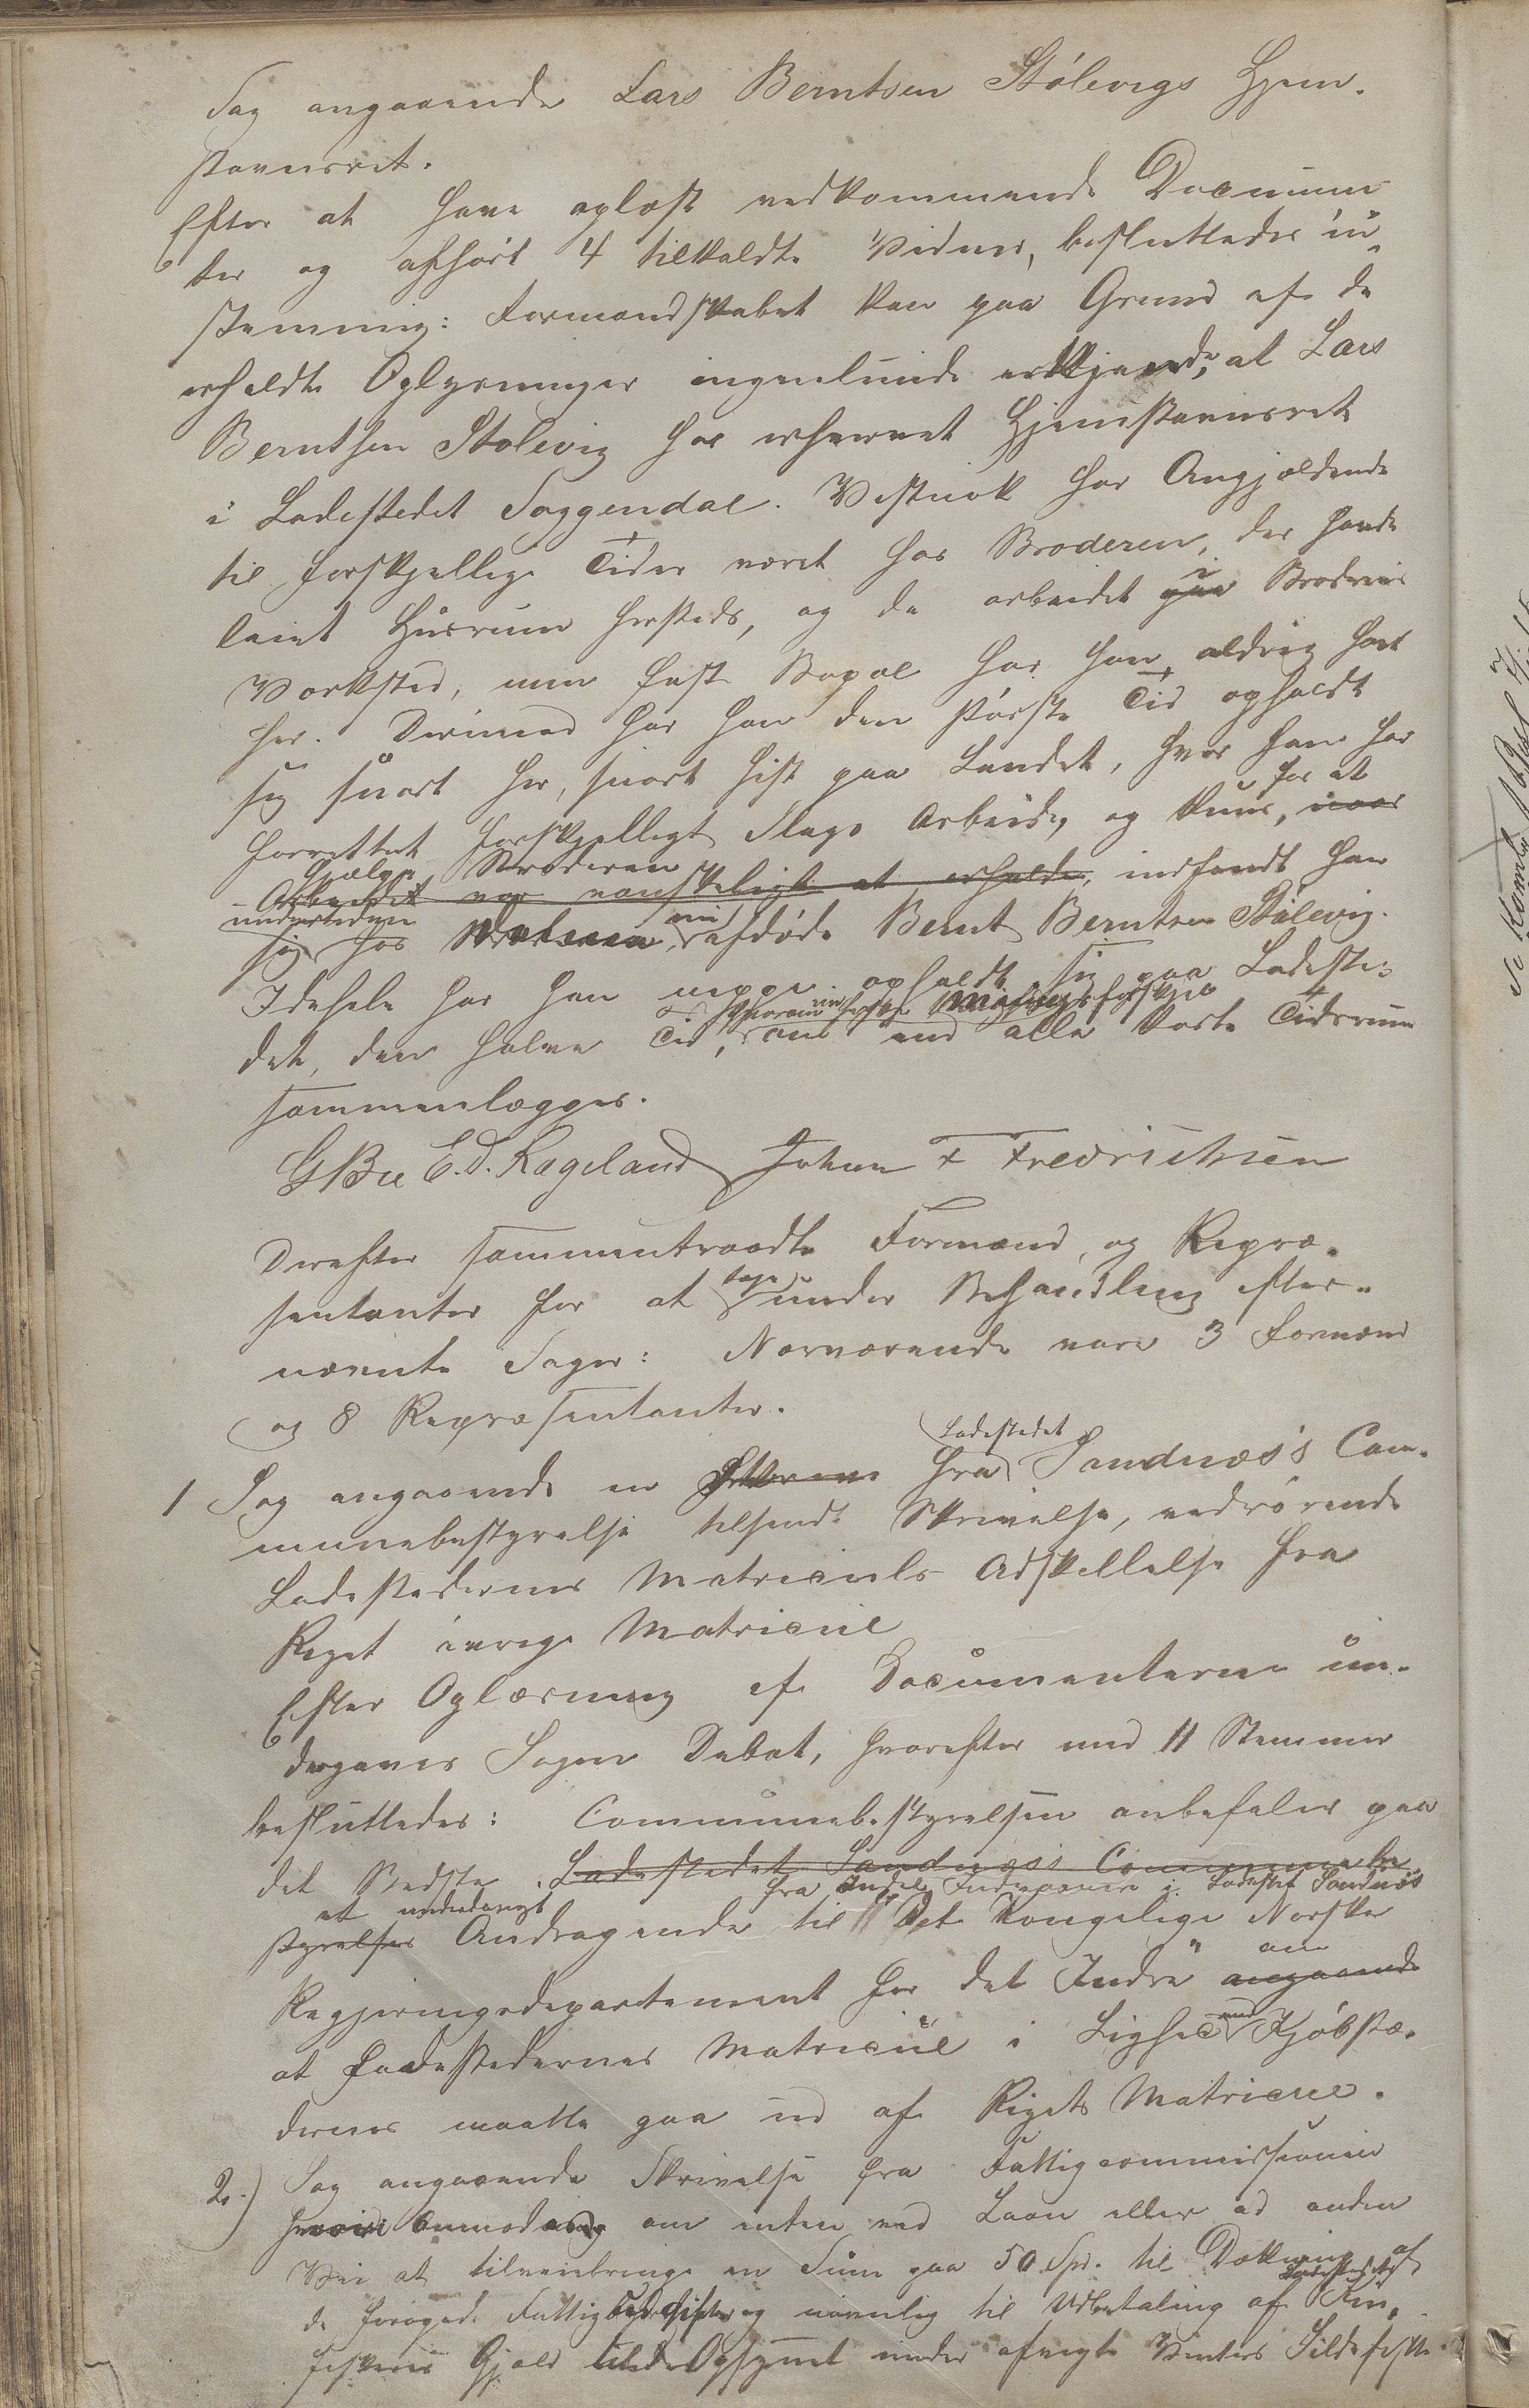 Sag angaaende Lars Berntsen Stølevigs Hjem-
stavnsret.
Efter at have oplæst vedkommende Documen-
ter og afhørt 4 tilkaldte Vidner, besluttedes 
stemmig: Formandskabet kan paa Grund af de
erholdte Oplysninger ingenlunde erkjende, at Lars
Berntsen Stølevig har erhvervet Hjemstavnsret
i Ladestedet Soggendal. Vistnok har Angjældende
til forskjellige Tider været hos Broderen, der havde
leiet Huusrum hersteds, og da arbeidet paa i Broderens
Værksted, men fast Bopæl har han aldrig havt
her. Derimod har han den største Tid opholdt
sig snart her, snart hist paa Landet, hvor han har
forrettet forskjelligt Slags Arbeide, og kuns, naar for at
hjælpe Broderen
Arbeidet var vanskeligt at erholde, indfandt han
undertiden
sig hos nu afdøde Bernt Berntsen Stølevig.
Idehele har han neppe opholdt sig paa Ladeste-
det den halve Tid, om end alle korte Tidsrum
sammenlægges.
GBu E. D. Rægeland Johan F Fredrichsen
Derefter sammentraadte Formænd og Repræ-
sentanter for at tage under Behandling efter-
nævnte Sager: Nærværende vare 3 Formænd
og 8 Repræsentanter.
1 Sag angaaende en fra Ladestedet Sandnæs's Com-
munebestyrelse tilsendt Skrivelse, vedrørende
Ladestedernes Matriculs Adskillelse fra
Riget øvrige Matricul
Efter Oplæsning af Documenterne un-
dergaves Sagen Debat, hvorefter med 11 Stemmer
besluttedes: Communebestyrelsen anbefaler paa
det Bedste Ladestedet Sandnæs's Communebe-
fra Indvaanere i Ladestedet Sandnæs
et underdanigt
styrelses Andragende til "Det Kongelige Norske
Regjeringsdepartement for det Indre" angaaende om
at Ladestedernes Matricul i Lighed med Kjøbstæ-
dernes maatte gaa ud af Rigets Matricul.
2.) Sag angaaende Skrivelse fra Fattigcommissionen
om enten ved Laan eller ad anden
Vei at tilveiebringe en Sum paa 50 Spd. til Dækning af
de forøgede Fattigudgifter og navnlig til Udbetaling af Ladestedets
fiskeris Gjæld til Opsynet under afvigte Vinters Sildefiske